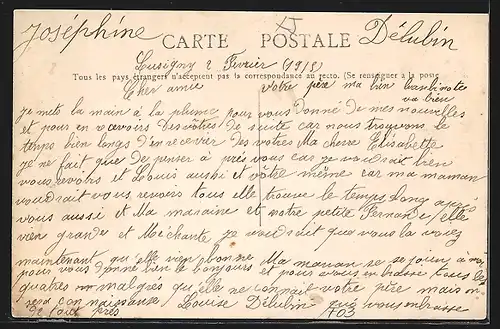 Joséphine Délubin
CARTE POSTALE
Lusigny 2 Fevrier (1918)
Tous les pays étrangers n'acceptent pas la correspondance au recto. (Se renseigner à la poste
Cher amie votre père ma bien
va bien
je mets la main à la plume pour vous donné de mes nouvelles
et pour en recevoirs des vôtres de suite car nous trouvons le
temps bien longs d'en recevier des votres Ma chere Elisabette
je ne fait que de penser à près vous car je voudrait bien
vous revoirs et Louis aussi et votre même car ma maman
voudrait vous revoirs tous elle trouve le temps long après
vous aussi et Ma maraine et votre petite Fernande elle
vien grande et Méchante je voudrait que vous la voyez
maintenant qu'elle vien bonne Ma maman se joins à moi
pour vous donné bien le bonjours et pour vous embrasse tous les
quatres malgrés qu'elle ne connait votre père mais
connaissance Louise Délubin qui vous embrasse
de tout près 703